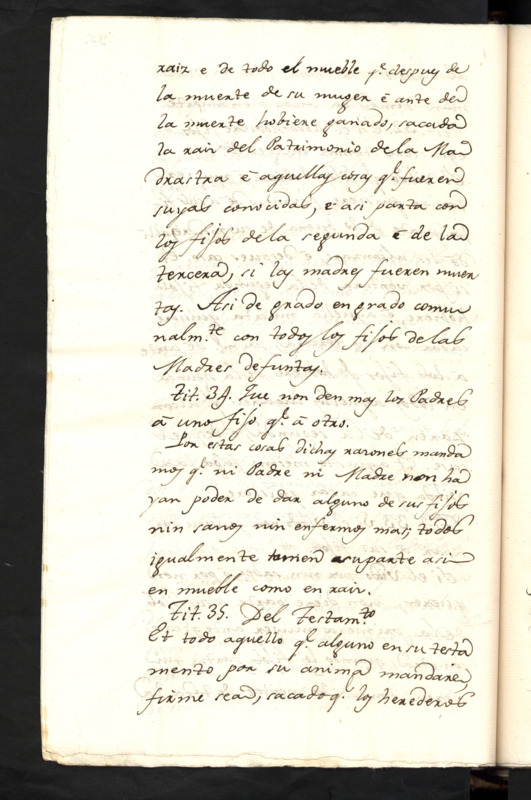 raiz e de todo el mueble q.e despues de
la muerte de su muger é ante de
la muerte hobiere ganado, sacada
la raiz del Patrimonio de la Ma
drastra é aquellas cosas q.e fueren
suyas conocidas, é asi parta con
los fijos de la segunda é de la
tercera, si las madres fueren muer
tas. Asi de grado en grado comu
nalm.te con todos los fijos de las
Madres defuntas.
Tit. 34. Que non den mas los Padres
á uno fijo q.e á otro.
Por estas cosas dichas razones manda
mos q.e ni Padre ni Madre non ha
yan poder de dar alguno de sus fijos
nin sanos nin enfermos mas, todos
igualmente tomen su parte asi
en mueble como en raiz.
Tit. 35. Del Testam.to
Et todo aquello q.e alguno en su testa
mento por su anima mandare,
firme sea, sacado q.e los herederos